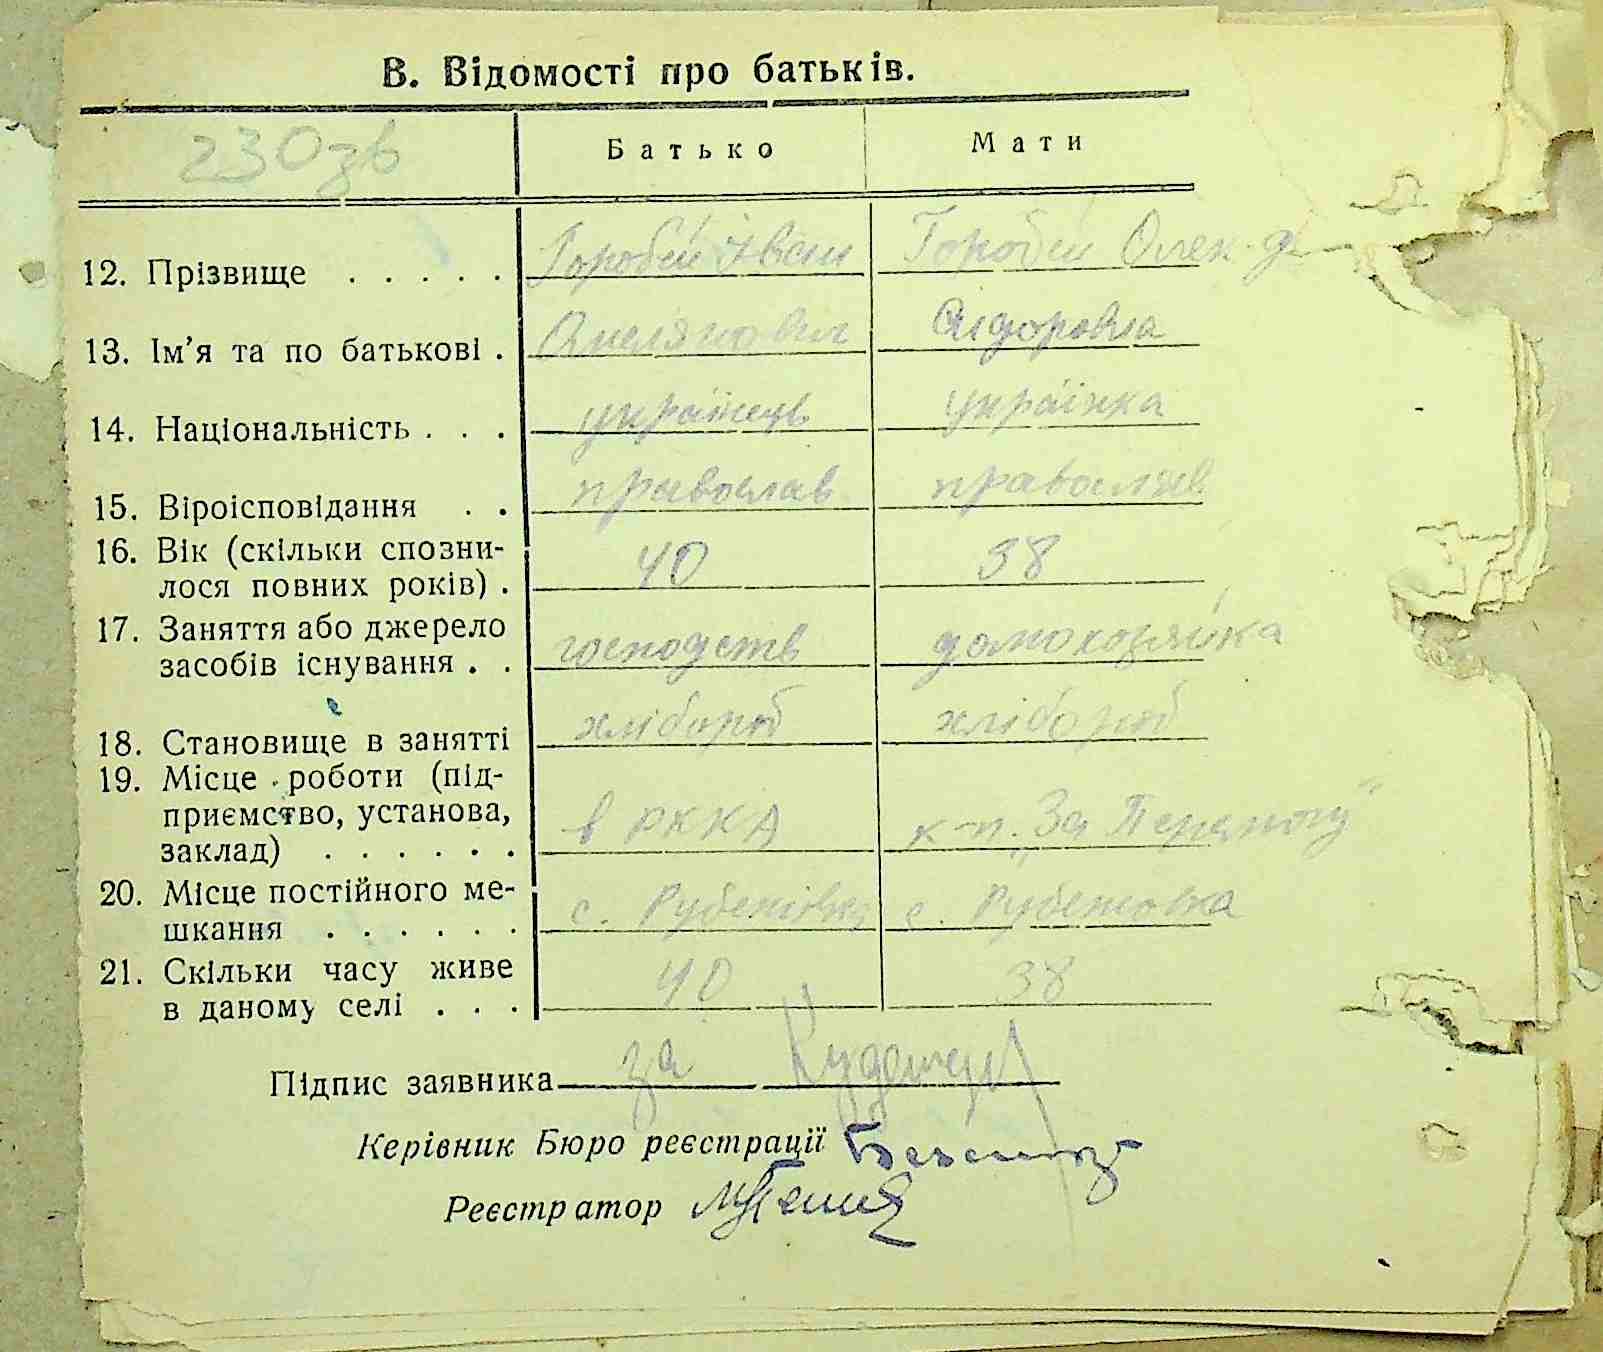 В. Відомості про батьків.
230зв
Батько Мати
12. Прізвище . . . . . Горобей Іван Горобей Олек-д
13. Ім'я та по батькові . Омелянович Сидоровна
14. Національність . . . українець українка
15. Віроісповідання . . православ православ
16. Вік (скільки спозни-
лося повних років) . 40 38
17. Заняття або джерело
засобів існування . . господств домохозяйка
18. Становище в занятті хлібороб хлібороб
19. Місце роботи (під-
приємство, установа,
заклад) . . . . . . в РККА к-п. „За Перемогу"
20. Місце постійного ме-
шкання . . . . . . с. Рубежівка с. Рубежовка
21. Скільки часу живе
в даному селі . . . 40 38
Підпис заявника за
Керівник Бюро реєстрації
Реєстратор